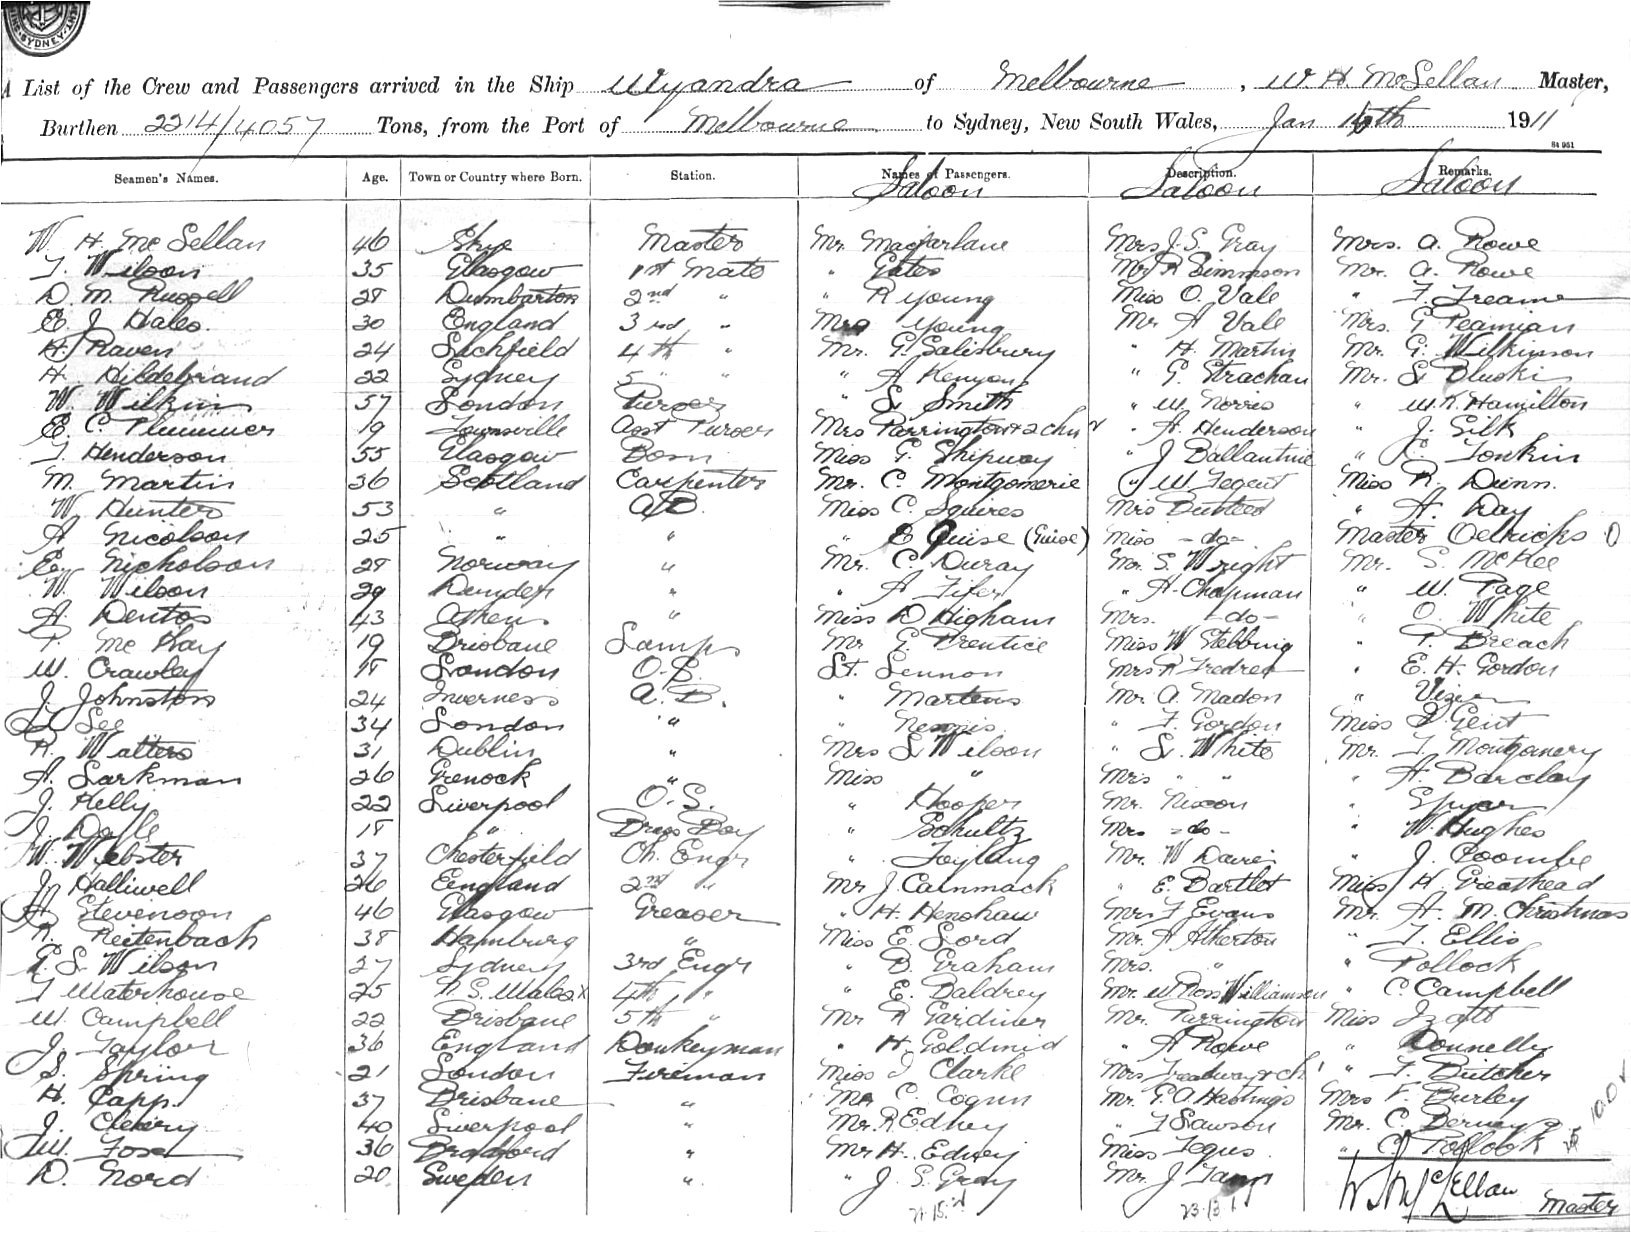 SYDNEY
A List of the Crew and Passengers arrived in the Ship Wyandra of Melbourne, W. H. McLellan Master,
Burthen 2214/4057 Tons, from the Port of Melbourne to Sydney, New South Wales, Jan 16th 1911
84 951
Seamen's Names. Age. Town or Country where Born. Station. Names of Passengers. Description. Remarks.
Saloon Saloon Saloon
W. H. McLellan 46 Skye Master Mr. Macfarlane Mrs J. S. Gray Mrs. A. Rowe
T. Wilson 35 Glasgow 1st Mate " Gates Mr R Simmson Mr. A. Rowe
D. M. Russell 28 Dumbarton 2nd " " R Young Miss O. Vale "
E. J. Hales. 30 England 3rd " Mrs Young Mr A Vale Mrs. G
H. Raven 24 Lichfield 4th " Mr. G. Salisbury " H. Martin Mr. G. Wilkinson
H. Hildebrand 22 Sydney 5 " " A Kenyon " G. Strachan Mr. L.
W. Wilkin 57 London Purser " L. Smith " W. Norris " W. R. Hamilton
E. C. Plummer 19 Townsville Asst Purser Mrs Parrington + 2 chn " A. Henderson " J. Silk
T. Henderson 55 Glasgow Bosn Miss G. Shipway " J Ballantine " Tonkin
M. Martin 36 Scotland Carpenter Mr. C. Montgomerie " W. Miss R. Dunn.
W. Hunter 53 " A.B. Miss C. Squires Mrs Busteed " A. Day
A Nicolson 25 " " " E Guise (Guise) Miss -do- Master Oelrichs
E. Nicholson 28 Norway " Mr. C. Duray Mr. S. Wright Mr. S. McKee
W. Wilson 29 Dundee " " A Fifer " A Chapman " W. Page
A. Dentos 43 Athens " Miss D Higham Mrs. -do- " O. White
P. McKay 19 Brisbane Lamps Mr E. Prentice Miss W Stebbing " P. Breach
W. Crawley 18 London O.S. Lt. Lennon Mrs R " E. H. Gordon
J. Johnston 24 Inverness A.B. " Martens Mr. A. Madon "
Lee 34 London " " " F. Gordon Miss Gent
R. Watters 31 Dublin " Mrs L Wilson " L. White Mr. T. Montgomery
A. Larkman 26 Grenock " Miss " Mrs " " " A. Barclay
J. Kelly 22 Liverpool O.S. " Hooper Mr. Nixon "
J. Dalle 18 " Brass Boy " Schultz Mrs -do- " W. Hughes
W. Webster 37 Chesterfield Ch. Engr " Mr. W Davies " J. Coombe
J. Halliwell 26 England 2nd " Mr J. Cammack " E. Bartlet Miss H. Greathead
A. Stevenson 46 Glasgow Greaser " H. Henshaw Mrs F Evans Mr. A. M. Christmas
R. Reitenbach 38 Hamburg " Miss E. Lord Mr. A Atherton " T. Ellis
R. S. Wilson 27 Sydney 3rd Engr " D. Graham Mrs. " " Pollock
T Waterhouse 25 N. S. Wales 4th " " E. Baldrey Mr. W. Ross Williamson " C. Campbell
W. Campbell 22 Brisbane 5th " Mr R Gardiner Mr. Parrington Miss Izatt
J. Taylor 36 England Donkeyman " H. Goldmid " A Rowe " Donnelly
S. Spring 21 London Fireman Miss J Clarke Mrs Treadway + ch " F. Butcher
H. Capp 37 Brisbane " C. Cogun Mr. G. A. Hastings Mrs F. Burley
J. Cleary 40 Liverpool " Mr. R Edney " F Lawson Mr. C.
W. Foss 36 Bradford " Mr H. Edney Miss " C. Pollock
D. Nord 20 Sweden " " J. S. Gray Mr. J
W. H. McLellan Master